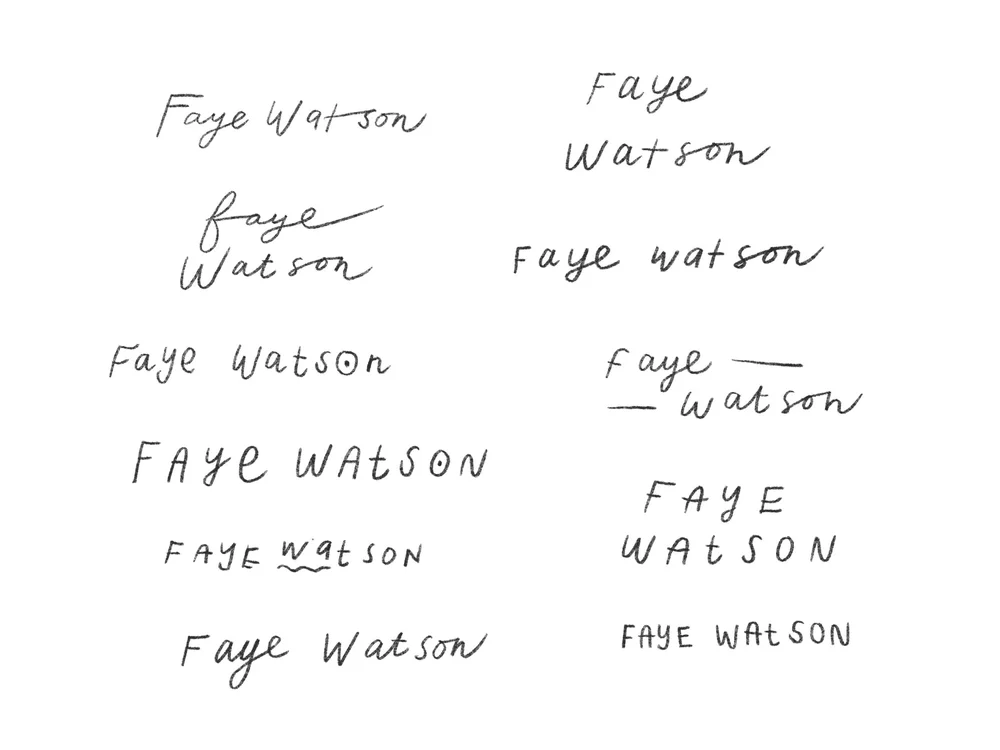 Faye Watson
faye
Watson
Faye Watson
FAye WAtSON
FAYE watSON
Faye Watson
Faye
Watson
Faye watson
faye —
— Watson
FAYE
WAtSON
FAYE WAtSON